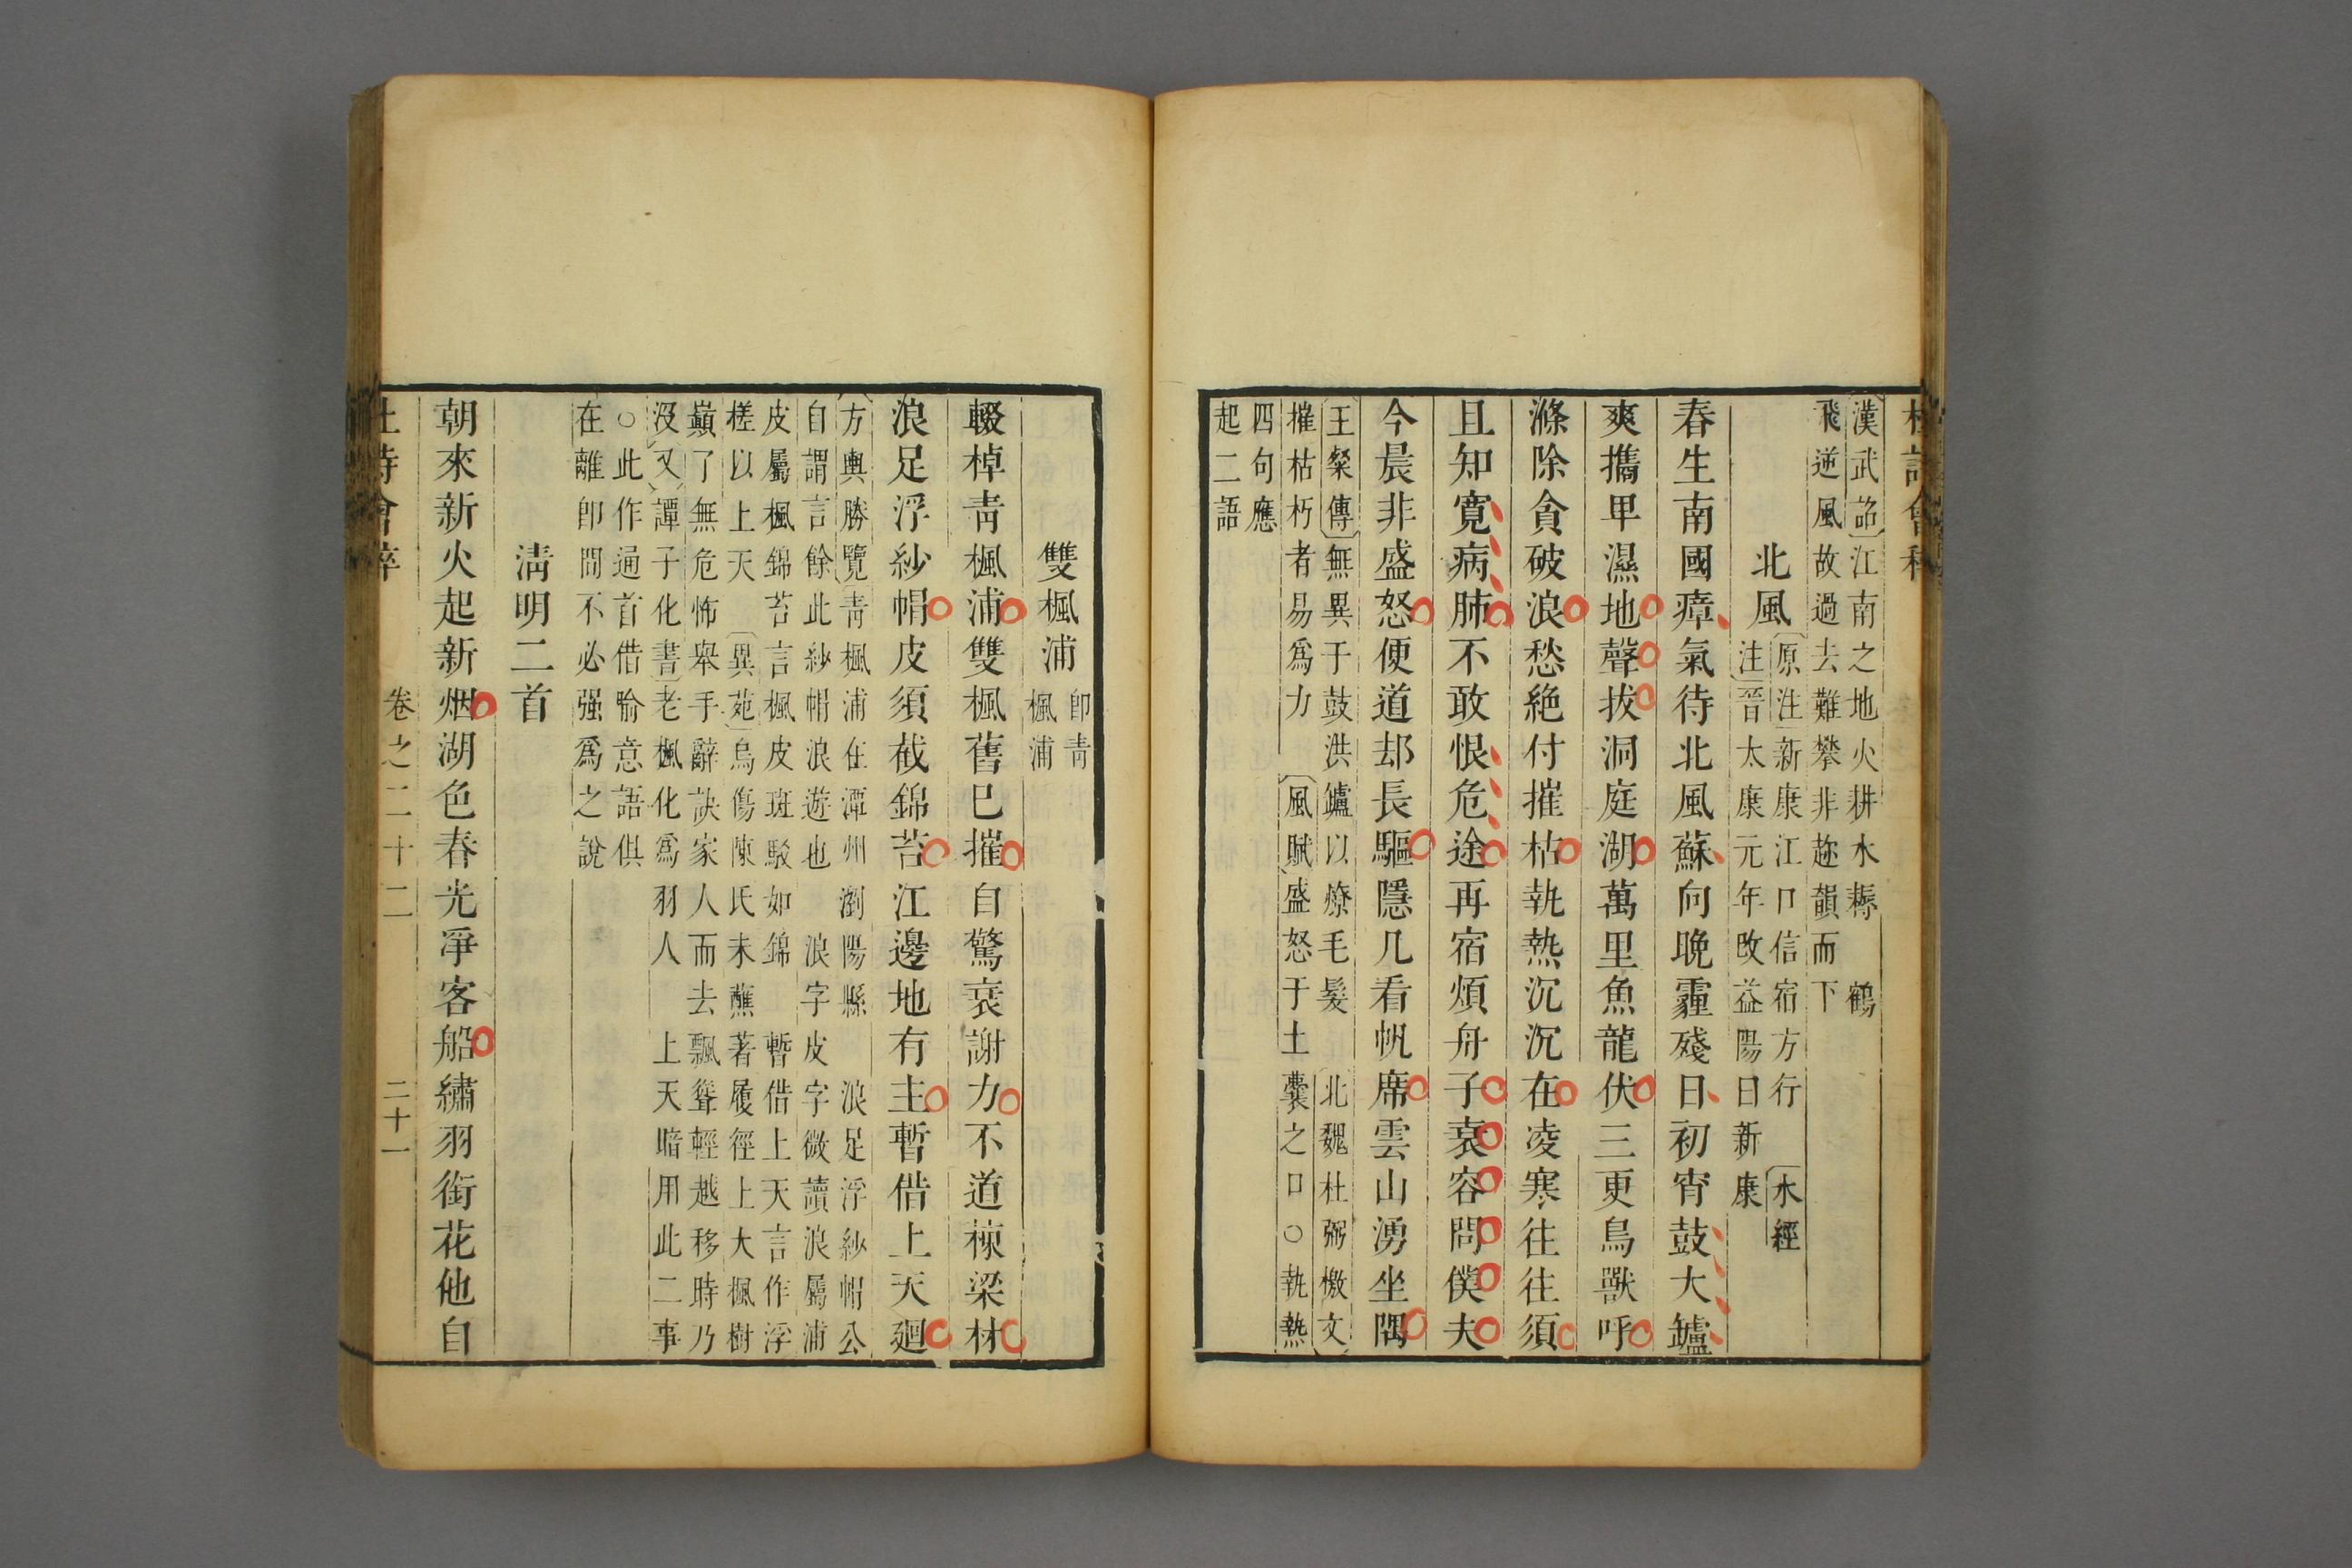 漢武詔江南之地火耕水耨 鶴
飛逆風故過去難攀非趂韻而下
北風
原注新康江口信宿方行 水經
注晉太康元年改益陽日新康
春生南國瘴氣待北風蘇向晚霾殘日初宵鼓大鑪
爽攜卑濕地聲拔洞庭湖萬里魚龍伏三更鳥獸呼
滌除貪破浪愁絕付摧枯執熱沉沉在凌寒往往須
且知寬病肺不敢恨危途再宿煩舟子衰容問僕夫
今晨非盛怒便道却長驅隱几看帆席雲山湧坐隅
王粲傳無異于鼓洪鑪以燎毛髮 北魏杜弼檄文
摧枯朽者易爲力 風賦盛怒于土囊之口○執熱
四句應
起二語
雙楓浦
卽靑
楓浦
輟棹靑楓浦雙楓舊已摧自驚衰謝力不道棟梁材
浪足浮紗帽皮須截錦苔江邊地有主暫借上天廻
方輿勝覽靑楓浦在潭州瀏陽縣 浪足浮紗帽公
自謂言餘此紗帽浪遊也 浪字皮字微讀浪屬浦
皮屬楓錦苔言楓皮斑駁如錦 暫借上天言作浮
槎以上天 異苑烏傷陳氏未醮著履徑上大楓樹
巔了無危怖舉手辭訣家人而去飄聳輕越移時乃
没又譚子化書老楓化爲羽人 上天暗用此二事
○此作通首借喻意語俱
在離卽間不必强爲之說
淸明二首
朝來新火起新烟湖色春光凈客船繡羽銜花他自
卷之二十二
二十一